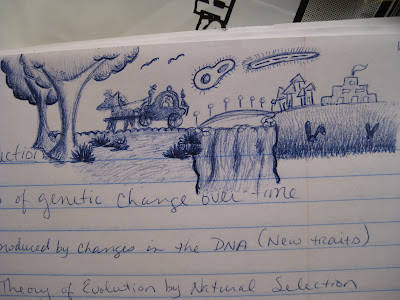 SH
uction
of genetic change over time
roduced by changes in the DNA (New traits)
Theory of Evolution by Natural Selection